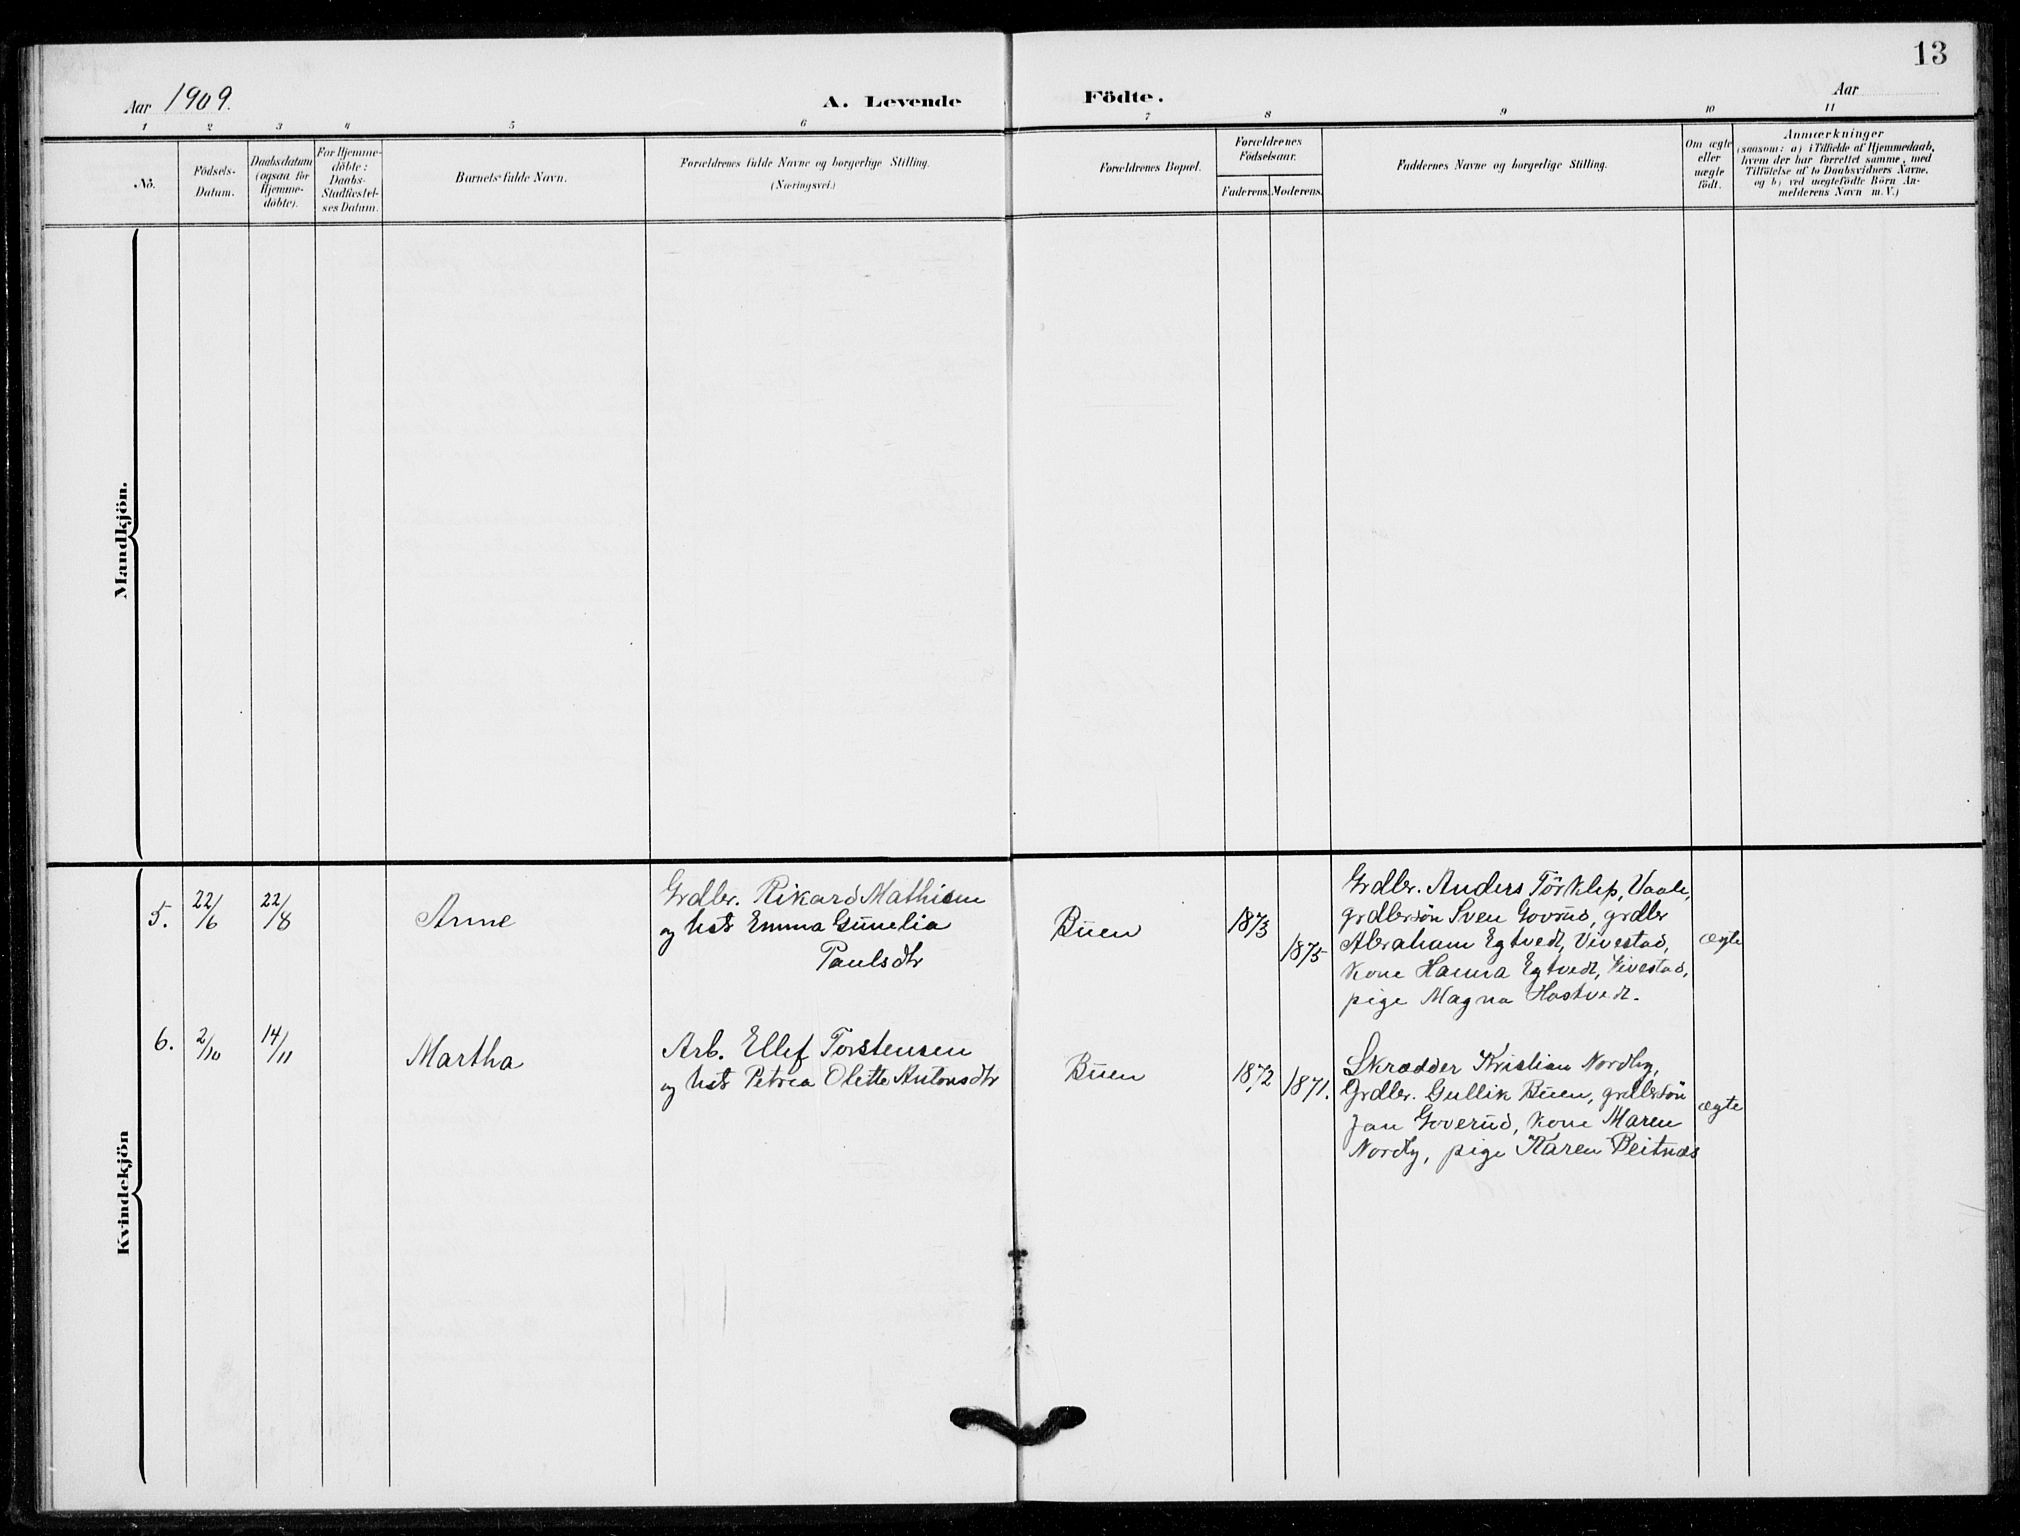 13
Aar 1909.
A. Levende Födte.
Aar
1 2 3 4 5 6 7 8 9 10 11
No.
Födsels-
Datum.
Daabsdatum
(ogsaa for
Hjemme-
döbte).
For Hjemme-
döbte:
Daabs-
Stadfæstel-
ses Datum.
Barnets fulde Navn.
Forældrenes fulde Navne og borgerlige Stilling.
(Næringsvei.)
Forældrenes Bopæl.
Forældrenes
Födselsaar.
Faderens. Moderens.
Faddernes Navne og borgerlige Stilling.
Om ægte
eller
uægte
födt.
Anmærkninger
(saasom: a) i Tilfælde af Hjemmedaab,
hvem der har forrettet samme, med
Tilföielse af to Daabsvidners Navne,
og b) ved uægtefödte Börn An-
melderens Navn m. V.)
Mandkjön.
Kvindekjön
5. 22/6 22/8
Anne
Grdbr. Rikard Mathisen
og hst Emma Gunelia
Paulsdtr
Buen
1873
1875
Grdbr. Anders Törklep, Vaale,
grdbrsön Sven Goverud, grdbr
Abraham Egtvedt, Vivestad,
kone Hanna Egtvedt, Vivestad,
pige Magna Hostvedt.
ægte
6. 2/10 14/11
Martha
Arb. Ellef Torstensen
og hst Petrea Olette Antonsdtr
Buen
1872
1871.
Skrædder Kristian Nordby,
Grdbr. Gullik Buen, grdbrsön
Jan Goverud, kone Maren
Nordby, pige Karen Beitnæs
ægte